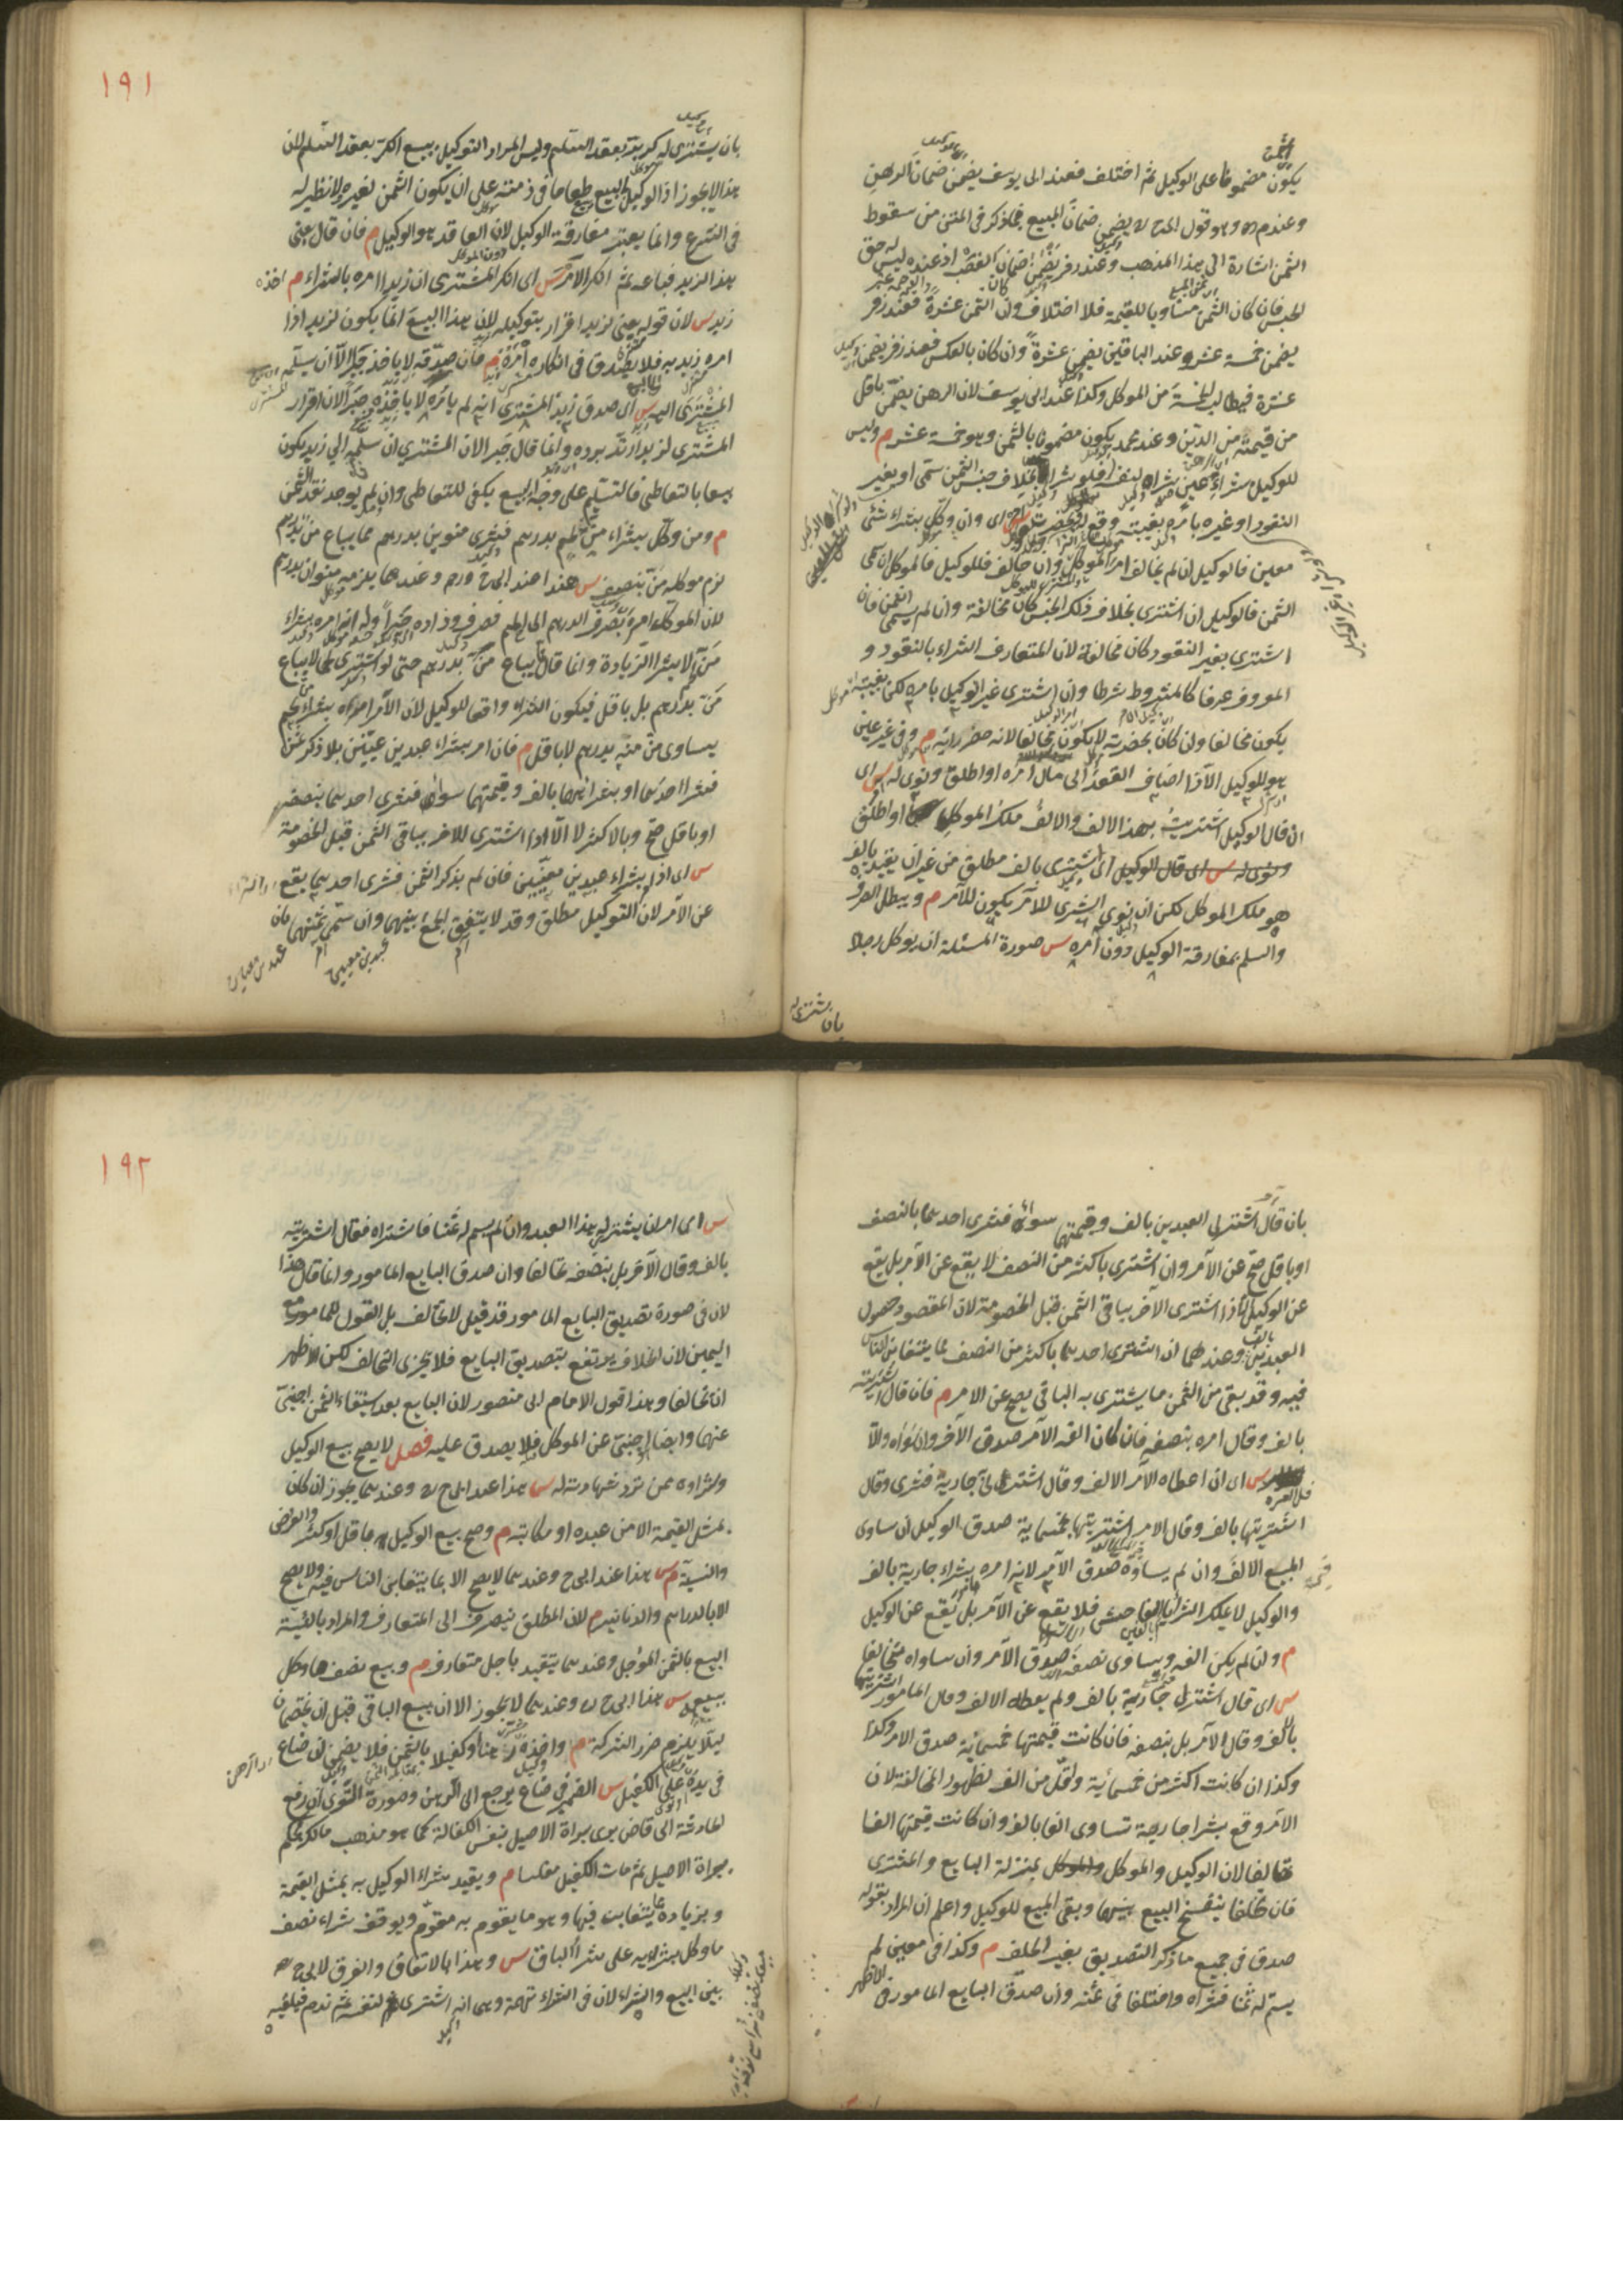 يكون مضمونا على الوكيل ثم اختلف فعند ابى يوسف يضمن ضمان الرهن
وعند م ره وهو قول ابى ح ره يضمن ضمان المبيع فما ذكر فى المتن من سقوط
الثمن اشارة الى هذا المذهب وعند زفر يضمن ضمان الغصب اذ عنده ليس له حق
الحبس فان كان الثمن مساويا للقيمة فلا اختلاف وان الثمن عشرة فعند زفر
يضمن خمسة عشر وعند الباقين يضمن عشرة وان كان بالعكس فعند زفر يضمن
عشرة فيطالب الخمسة من الموكل وكذا عند ابى يوسف لان الرهن يضمن باقل
من قيمته من الدين وعند محمد يكون مضمونا بالثمن وهو خمسة عشر م وليس
للوكيل بشراء عين شراه لنفسه فلو شراه بخلاف جنس الثمن سمى او بغير
النقود او غيره بامره بغيبته وقع له س اى وان وكل بشراء شئ
معين فالوكيل ان لم يخالف امر الموكل وان خالف فللوكيل فالموكل ان سمى
الثمن فالوكيل ان اشترى بخلاف ذلك الجنس كان مخالفة وان لم يسمى الثمن فان
اشترى بغير النقود كان مخالفة لان المتعارف الشراء بالنقود و
المعروف عرفا كالمشروط شرطا وان اشترى غير الوكيل بامره لكن بغيبته
يكون مخالفا وان كان بحضرته لا يكون مخالفا لانه حضر رايه م وفى غير عين
هو للوكيل الا اذا اضاف العقد الى مال امره او اطلق ونوى له س اى
ان قال الوكيل اشتريت بهذا الالف والالف ملك الموكل او اطلق
ونوى له س اى قال الوكيل اى اشترى بالف مطلق من غير ان يقيد بالف
هو ملك الموكل لكن ان نوى الشرى للآمر يكون للآمر م ويبطل الصرف
والسلم بمفارقة الوكيل دون آمره س صورة المسئلة ان يوكل رجلا
بان يشترى له
١٩١
بان يشترى له كر بر بعقد السلم وليس المراد التوكيل ببيع الكر بعقد السلم لان
هذا لا يجوز اذ الوكيل يبيع طعاما فى ذمته على ان يكون الثمن لغيره ولا نظير له
فى الشرع وانما يعتبر مفارقة الوكيل لان العاقد هو الوكيل م فان قال بعنى
هذا لزيد فباعه ثم انكر الامر س اى انكر المشترى ان زيدا امره بالشراء م اخذه
زيد س لان قوله بعنى لزيد اقرار بتوكيله لان هذا البيع انما يكون لزيد اذا
امره زيد به فلا يصدق فى انكاره امره م فان صدقه لا ياخذ جبرا الا ان سلمه
المشترى اليه س اى صدق زيد المشترى انه لم يامره لا ياخذه جبرا لان اقرار
المشترى لزيد ارتد برده وانما قال جبرا لان المشترى ان سلمه الى زيد يكون
بيعا بالتعاطى فالتسليم على وجه البيع يكفى للتعاطى وان لم يوجد نقد الثمن
م ومن وكل بشراء من لحم بدرهم فشرى منوين بدرهم مما يباع من بدرهم
لزم موكله من بنصف س هذا عند ابى ح ره وعندهما يلزمه منوان بدرهم
لان الموكل امره بصرف الدرهم الى اللحم فصرف وزاده خيرا وله انه امره بشراء
من لا بشراء الزيادة وانما قال يباع من بدرهم حتى لو اشترى لحما لا يباع
من بدرهم بل باقل فيكون الشراء واقعا للوكيل لان الآمر امره بشراء لحم
يساوى من منه بدرهم لا باقل م فان امر بشراء عبدين عينين بلا ذكر ثمن
فشرا احدهما او بشرائهما بالف وقيمتهما سواء فشرى احدهما بنصفه
او باقل صح وبالاكثر لا الا اذا اشترى للاخر بباقى الثمن قبل الخصومة
س اى اذا بشراء عبدين معينين فان لم يذكر الثمن فشرى احدهما يقع
عن الآمر لان التوكيل مطلق وقد لا يتفق الجمع بينهما وان سمى ثمنهما بان
بان قال اشتر لى العبدين بالف وقيمتهما سواء فشرى احدهما بالنصف
او باقل صح عن الآمر وان اشترى باكثر من النصف لا يقع عن الآمر بل يقع
عن الوكيل الا اذا اشترى الآخر بباقى الثمن قبل الخصومة لان المقصود حصول
العبدين بالف وعندهما ان اشترى احدهما باكثر من النصف بما يتغابن الناس
فيه وقد بقى من الثمن ما يشترى به الباقى يصح عن الامر م فان قال اشتريته
بالف وقال امره بنصفه فان كان الفه الآمر صدق الآخر وان سواه والا
فللآمر س اى ان اعطاه الآمر الالف وقال اشتر لى جارية فشرى وقال
اشتريتها بالف وقال الامر اشتريتها بخمسمائة صدق الوكيل ان ساوى
المبيع الالف وان لم يساوه صدق الآمر لانه امره بشراء جارية بالف
والوكيل لا يملك الشراء بالغبن الفاحش فلا يقع عن الآمر بل يقع عن الوكيل
م وان لم يكن الفه وساوى نصفه صدق الآمر وان ساواه تحالفا
س اى قال اشتر لى جارية بالف ولم يعطه الالف وقال المامور اشتريتها
بالف وقال الآمر بل بنصفه فان كانت قيمتها خمسمائة صدق الامر وكذا
وكذا ان كانت اكثر من خمسمائة واقل من الف لظهور المخالفة لان
الآمر وقع بشرا جارية تساوى الفا بالف وان كانت قيمتها الفا
تحالفا لان الوكيل والموكل بمنزلة البايع والمشترى
فان تحالفا ينفسخ البيع بينهما وبقى المبيع للوكيل واعلم ان المراد بقوله
صدق فى جميع ما ذكر التصديق بغير الحلف م وكذا فى معين لم
يسم له ثمنا فشراه واختلفا فى ثمنه وان صدق البايع المامور فى الاظهر
١٩٢
س اى امر ان يشتر له هذا العبد وان لم يسم له ثمنا فاشتراه فقال اشتريته
بالف وقال الآمر بل بنصفه تحالفا وان صدق البايع المامور وانما قال هذا
لان فى صورة تصديق البايع المامور قد قيل لا تحالف بل القول للمامور مع
اليمين لان الخلاف يرتفع بتصديق البايع فلا يجرى التحالف لكن الاظهر
ان تحالفا وهذا قول الامام ابى منصور لان البايع بعد استيفاء الثمن اجنبى
عنهما وايضا اجنبى عن الموكل فلا يصدق عليه فصل لا يصح بيع الوكيل
وشراؤه ممن ترد شهادته له س هذا عند ابى ح ره وعندهما يجوز ان كان
بمثل القيمة الا من عبده او مكاتبه م وصح بيع الوكيل بما قل او كثر والعرض
والنسية م س هذا عند ابى ح وعندهما لا يصح الا بما يتغابن الناس فيه ولا يصح
الا بالدراهم والدنانير م لان المطلق ينصرف الى المتعارف والمراد بالنسية
البيع بالثمن المؤجل وعندهما يتقيد باجل متعارف م وبيع نصف ما وكل
ببيعه س هذا ابى ح ره وعندهما لا يجوز الا ان يبيع الباقى قبل ان يختصمان
ليلا يلزم ضرر الشركة م واخذه رهنا او كفيلا بالثمن فلا يضمن ان ضاع
فى يده على الكفيل س الضمير فى ضاع يرجع الى الرهن وصورة التوى ان رفع
الحادثة الى قاض يرى براة الاصيل بنفس الكفالة كما هو مذهب مالك فحكم
ببراة الاصيل ثم مات الكفيل مفلسا م ويقيد شراء الوكيل به بمثل القيمة
وبزيادة يتغابن فيها وهو ما يقوم به مقوم ويوقف شراء نصف
ما وكل بشرائه على شرا الباقى س وهذا بالاتفاق والفرق لابى ح ره
بين البيع والشراء لان فى الشراء تهمة وهى انه اشترى لنفسه ثم ندم فيلقيه